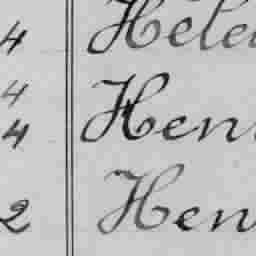 4 Hele
4
4 Hen
2 Hen